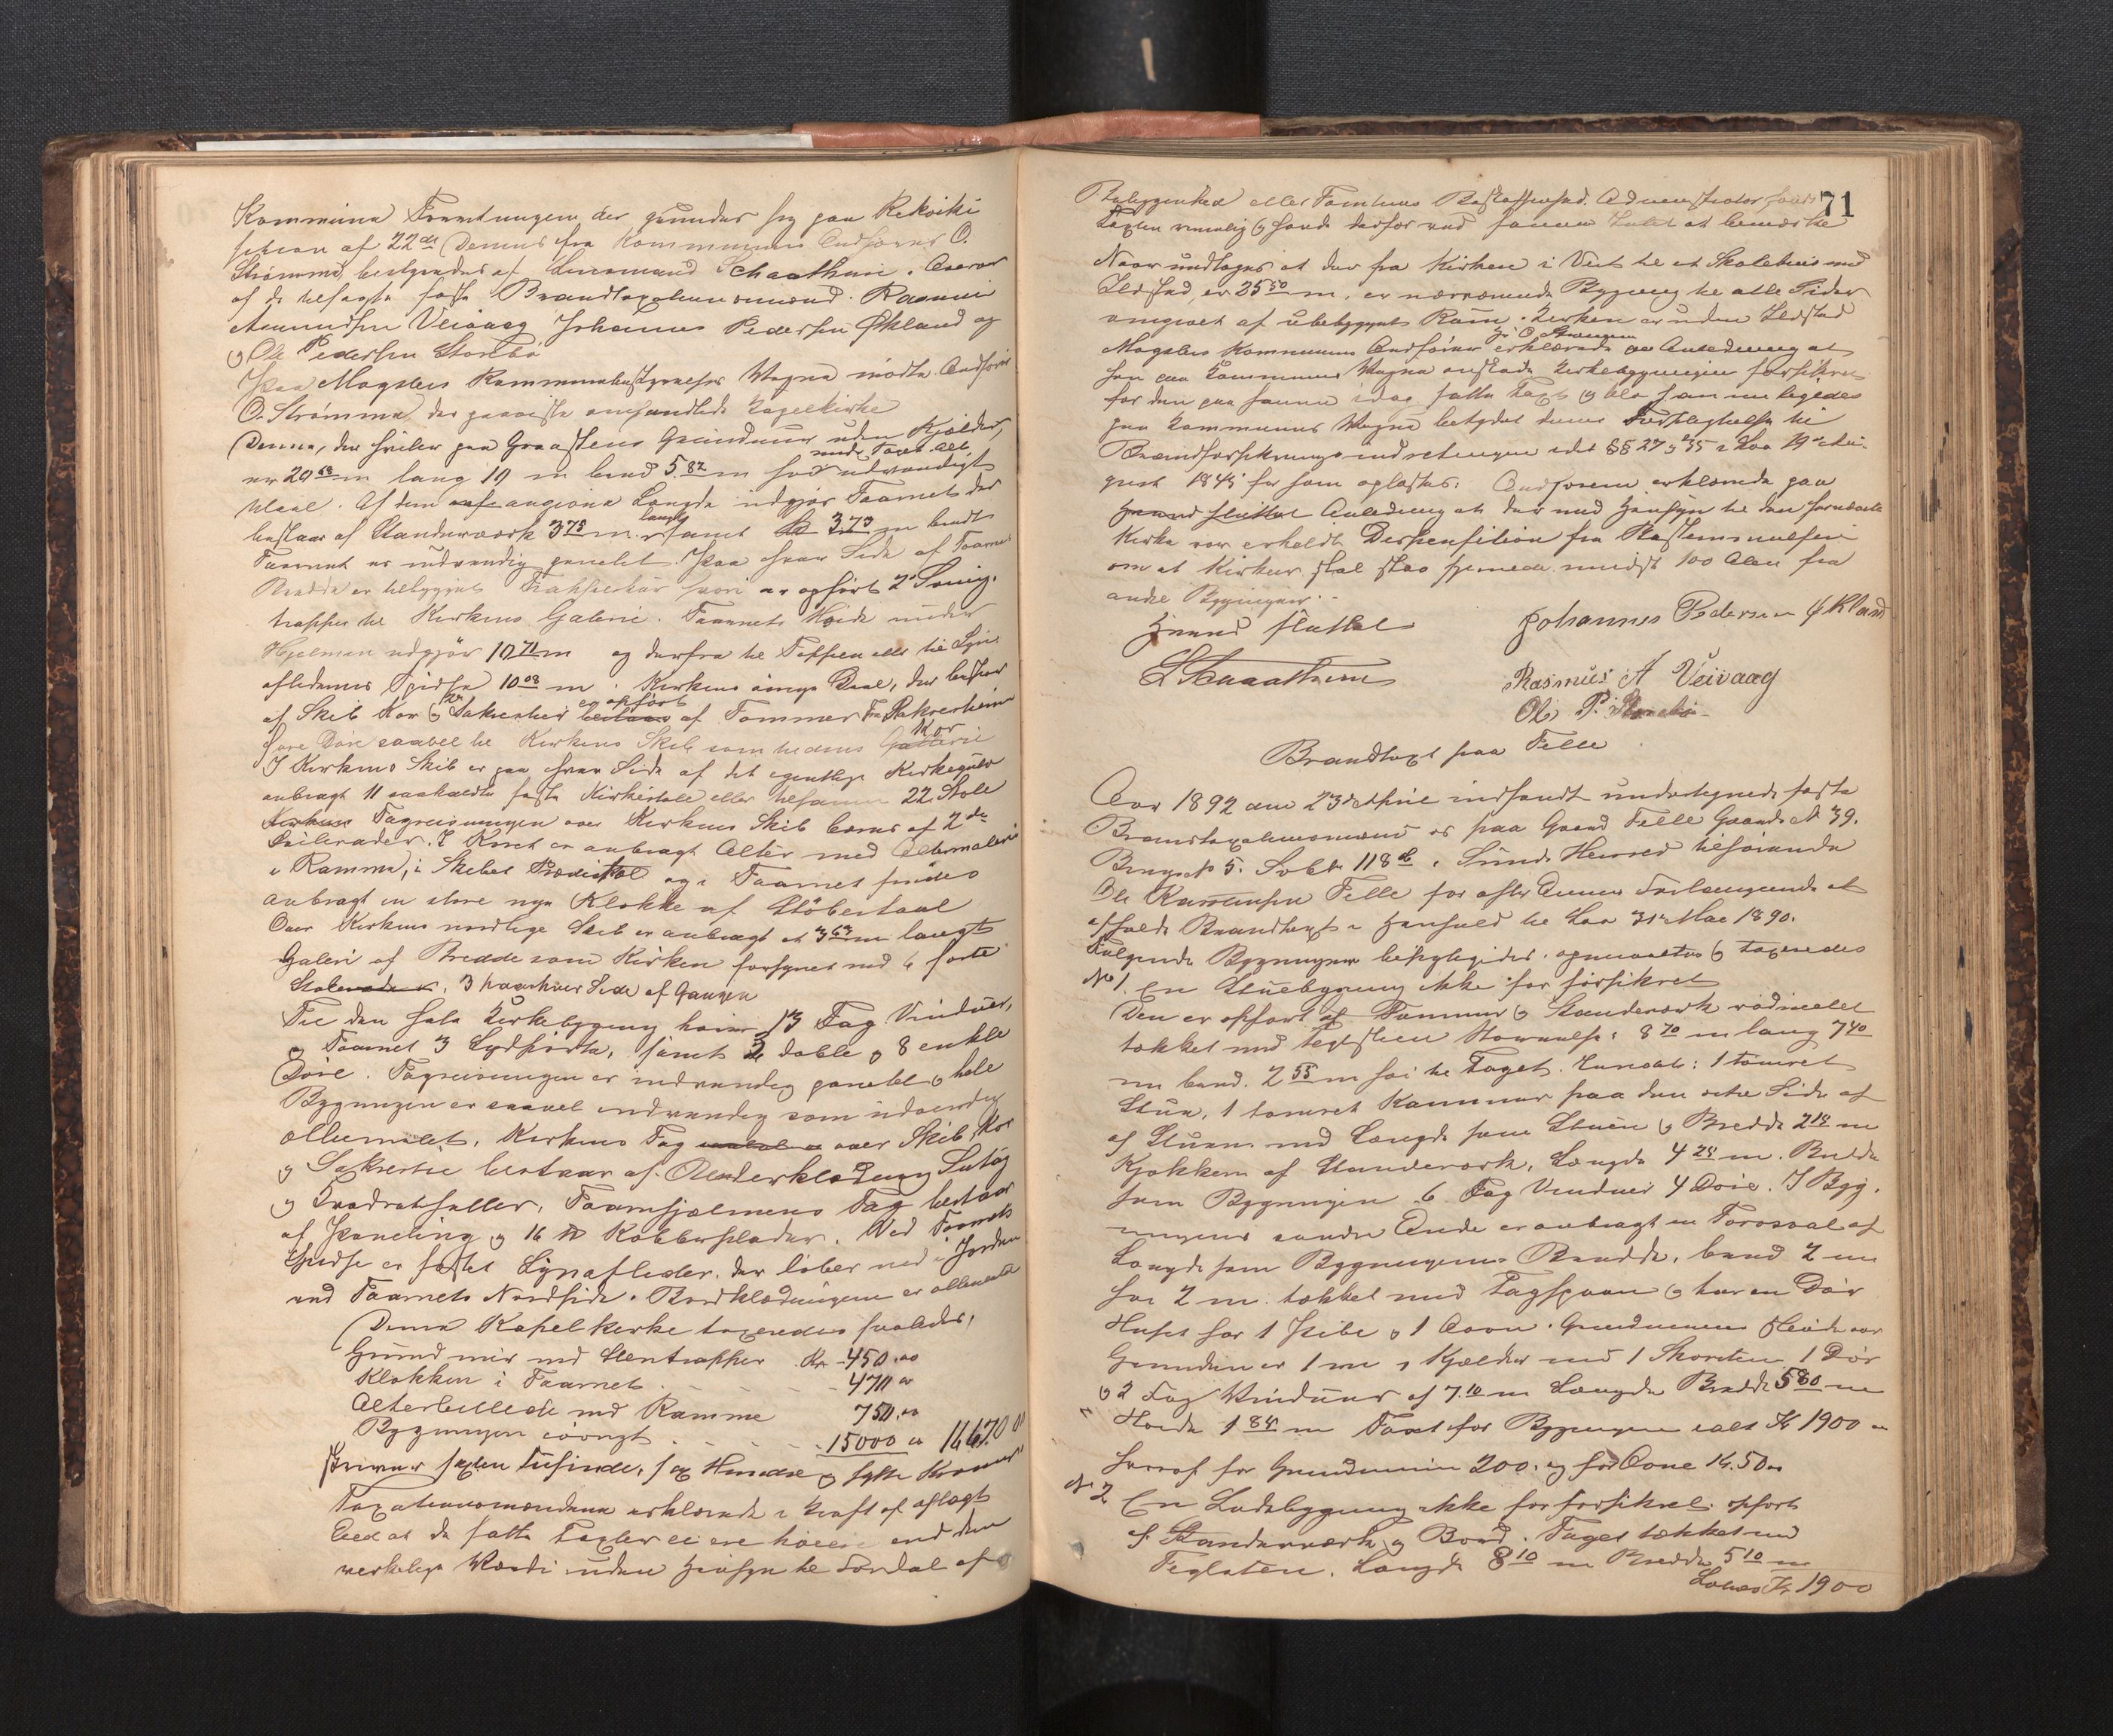 Kommune Forretningen der grunder sig paa Rekvisi
sition af 22de Dennes fra Kommunens Ordfører O.
Strømme bestyredes af Lensmand Schaathun. Overvær
af de befaste faste Brandtaxationsmænd. Rasmus
Amundsen Veivaag Johannes Pedersen Økland og
og Ole Pedersen Storebø
Paa Mogsters Kommunebestyrelses Vegne mødte Ordfører
O. Strømme der paaviste omhandlede Kapelkirke
Denne, der hviler paa Graastens Grundmur uden Kjelder,
er 20 68 m lang 10 m bred 5.82 m høi udvendigt
under Taget alt
Maal. Af den angivne Længde udgjør Taarnet der
bestaar af Standerværk 3 75 m. langt samt 3 73 m bredt
Taarnet er udvendig panelet. Paa hver Side af Taarnets
Bredde er tilbygget Trappeskur hvori er opført 2 Sving-
trapper til Kirkens Galleri. Taarnets Høide under
Hjelmen udgjør 10 71 m og derfra til Toppen eller til Lyn-
aflederens Spidse 10 08 m. Kirkens øvrige Deel, der bestaar
af Skib Kor og Sakresti er opført af Tømmer Fra Sakrestiein
fører Døre saavel til Kirkens Skib som til dens Kor
I Kirkens Skib er paa hver Side af det egentlige Kirkegulv
anbragt 11 saakaldte faste Kirkestole eller tilsammen 22 Stole
Tagreisningen over Kirkens Skib bæres af 2de
Pillerader. I Koret er anbragt Alter med Altermaleri
i Ramme, i Skibet Prædikestol og i Taarnet findes
anbragt en større nye Klokke af Støbestaal
Over Kirkens nordlige Skib er anbragt et 3 63 m langt
Galeri af Bredde som Kirken forsynet med 6 faste
Stole, 3 paa hver Side af Gangen
Til den hele Kirkebygning hører 13 Fag Vinduer,
og Taarnet 3 Lydporte, samt 3 doble og 8 enkle
Døre. Tagreisningen er indvendig panelet og hele
Bygningen er saavel indvendig som udvendig
oliemalet. Kirkens Tag over Skib, Kor
og Sakresti bestaar af Underklædning Sutag
og Kvadratheller. Taarnhjelmens Tag bestaar
af Paneling og 16 Kobberplader. Ved Taarnets
Spidse er fæstet Lynafleder, der løber ned i Jorden
ved Taarnets Nordside. Bordklædningen er oliemalet
Denne Kapelkirke taxeredes saaledes,
Grundmur med Stentrapper Kr 450.00
Klokken i Taarnet - - - 470 00
Alterbillede med Ramme 750.00
Bygningen iøvrigt - - - 15000 00 16670 00
skriver sexten Tusinde, sex Hundre og sytti Kroner
Taxationsmændene erklærede i Kraft af aflagt
Eed at de satte Taxter ei ere høiere end den
verkelige Værdi uden Hensyn til Fordel af
71
Beliggenhed eller Tomtens Beskaffenhed. Administrator fandt
Taxten rimelig og havde derfor ved samme Intet at bemærke
Naar undtages at der fra Kirken i Vest til et Skolehus med
Ildsted er 25 50 m, er nærværende Bygning til alle Sider
omgivet af ubebyggets Rum. Kirken er uden Ildsted
Mogsters Kommunes Ordfører Hr O Strømme erklærede i Anledning at
han paa Kommunens Vegne ønskede Kirkebygningen forsikret
for den paa samme idag satte Taxt og blev han ligeledes
paa Kommunens Vegne betydet dennes Forpligtelse til
Brandforsikringsindretningen idet §§ 27 og 35 i Lov 19de Au-
gust 1845 for ham oplæstes. Ordføreren erklærede paa
Anledning at der med Hensyn til den fornævnte
Kirke var erholdt Dispensation fra Bestemmelsen
om at Kirker skal staa fjernede mindst 100 Alen fra
andre Bygninger.-
Johannes Pedersen Økland
L Schaathun
Rasmus A Veivaag
Ole P. Storebø
Brandtaxt paa Telle
Aar 1892 den 23de April indfandt undertegnede faste
Brandtaxationsmænd os paa Gaard Telle Gaards No 39.
Brugs No 5. Søbk 118 Sunds Herred tilhørende
Ole Rasmussen Telle for efter Dennes Forlangende at
afholde Brandtaxt i Henhold til Lov 31te Mai 1890.
Følgende Bygninger besigtigedes. opmaaltes og taxeredes
No 1. En Stuebygning ikke før forsikret
Den er opført af Tømmer og Standerværk rødmalet
tækket med teglsteen Størrelse: 8 70 m lang 7 40
m bred. 2 55 m høi til Taget. Inndelt: 1 tømret
Stue, 1 tømret Kammer paa den østre Side af
af Stuen med Længde som Stuen og Bredde 2 10 m
Kjøkken af Standerværk, Længde 4 28 m. Bredde
som Bygningen 6 Fag Vinduer 4 Døre. I Byg-
ningens søndre Ende er anbragt en Torvsval af
Længde som Bygningens Bredde, bred 2 m
høi 2 m. tækket med Tagspaan og har en Dør
Huset har 1 Pibe og 1 Oovn. Grundmurens Høide over
Grunden er 1 m, Kjelder med 1 Skorsten, 1 Dør
og 2 Fag Vinduer af 7.10 m Længde Bredde 5 80 m
Høide 1 85 m Taxt for Bygningen ialt Kr 1900 00
hvoraf for Grundmuren 200. og for Oone 14.50
No 2 En Ladebygning ikke før forsikret. opført
af Standerværk og Bord. Taget tækket med
Teglsten. Længde 8 10 m Bredde 5 10 m
Lateris Kr 1900